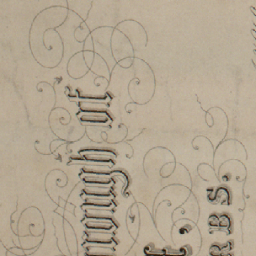 rrough of
t,
RBS.